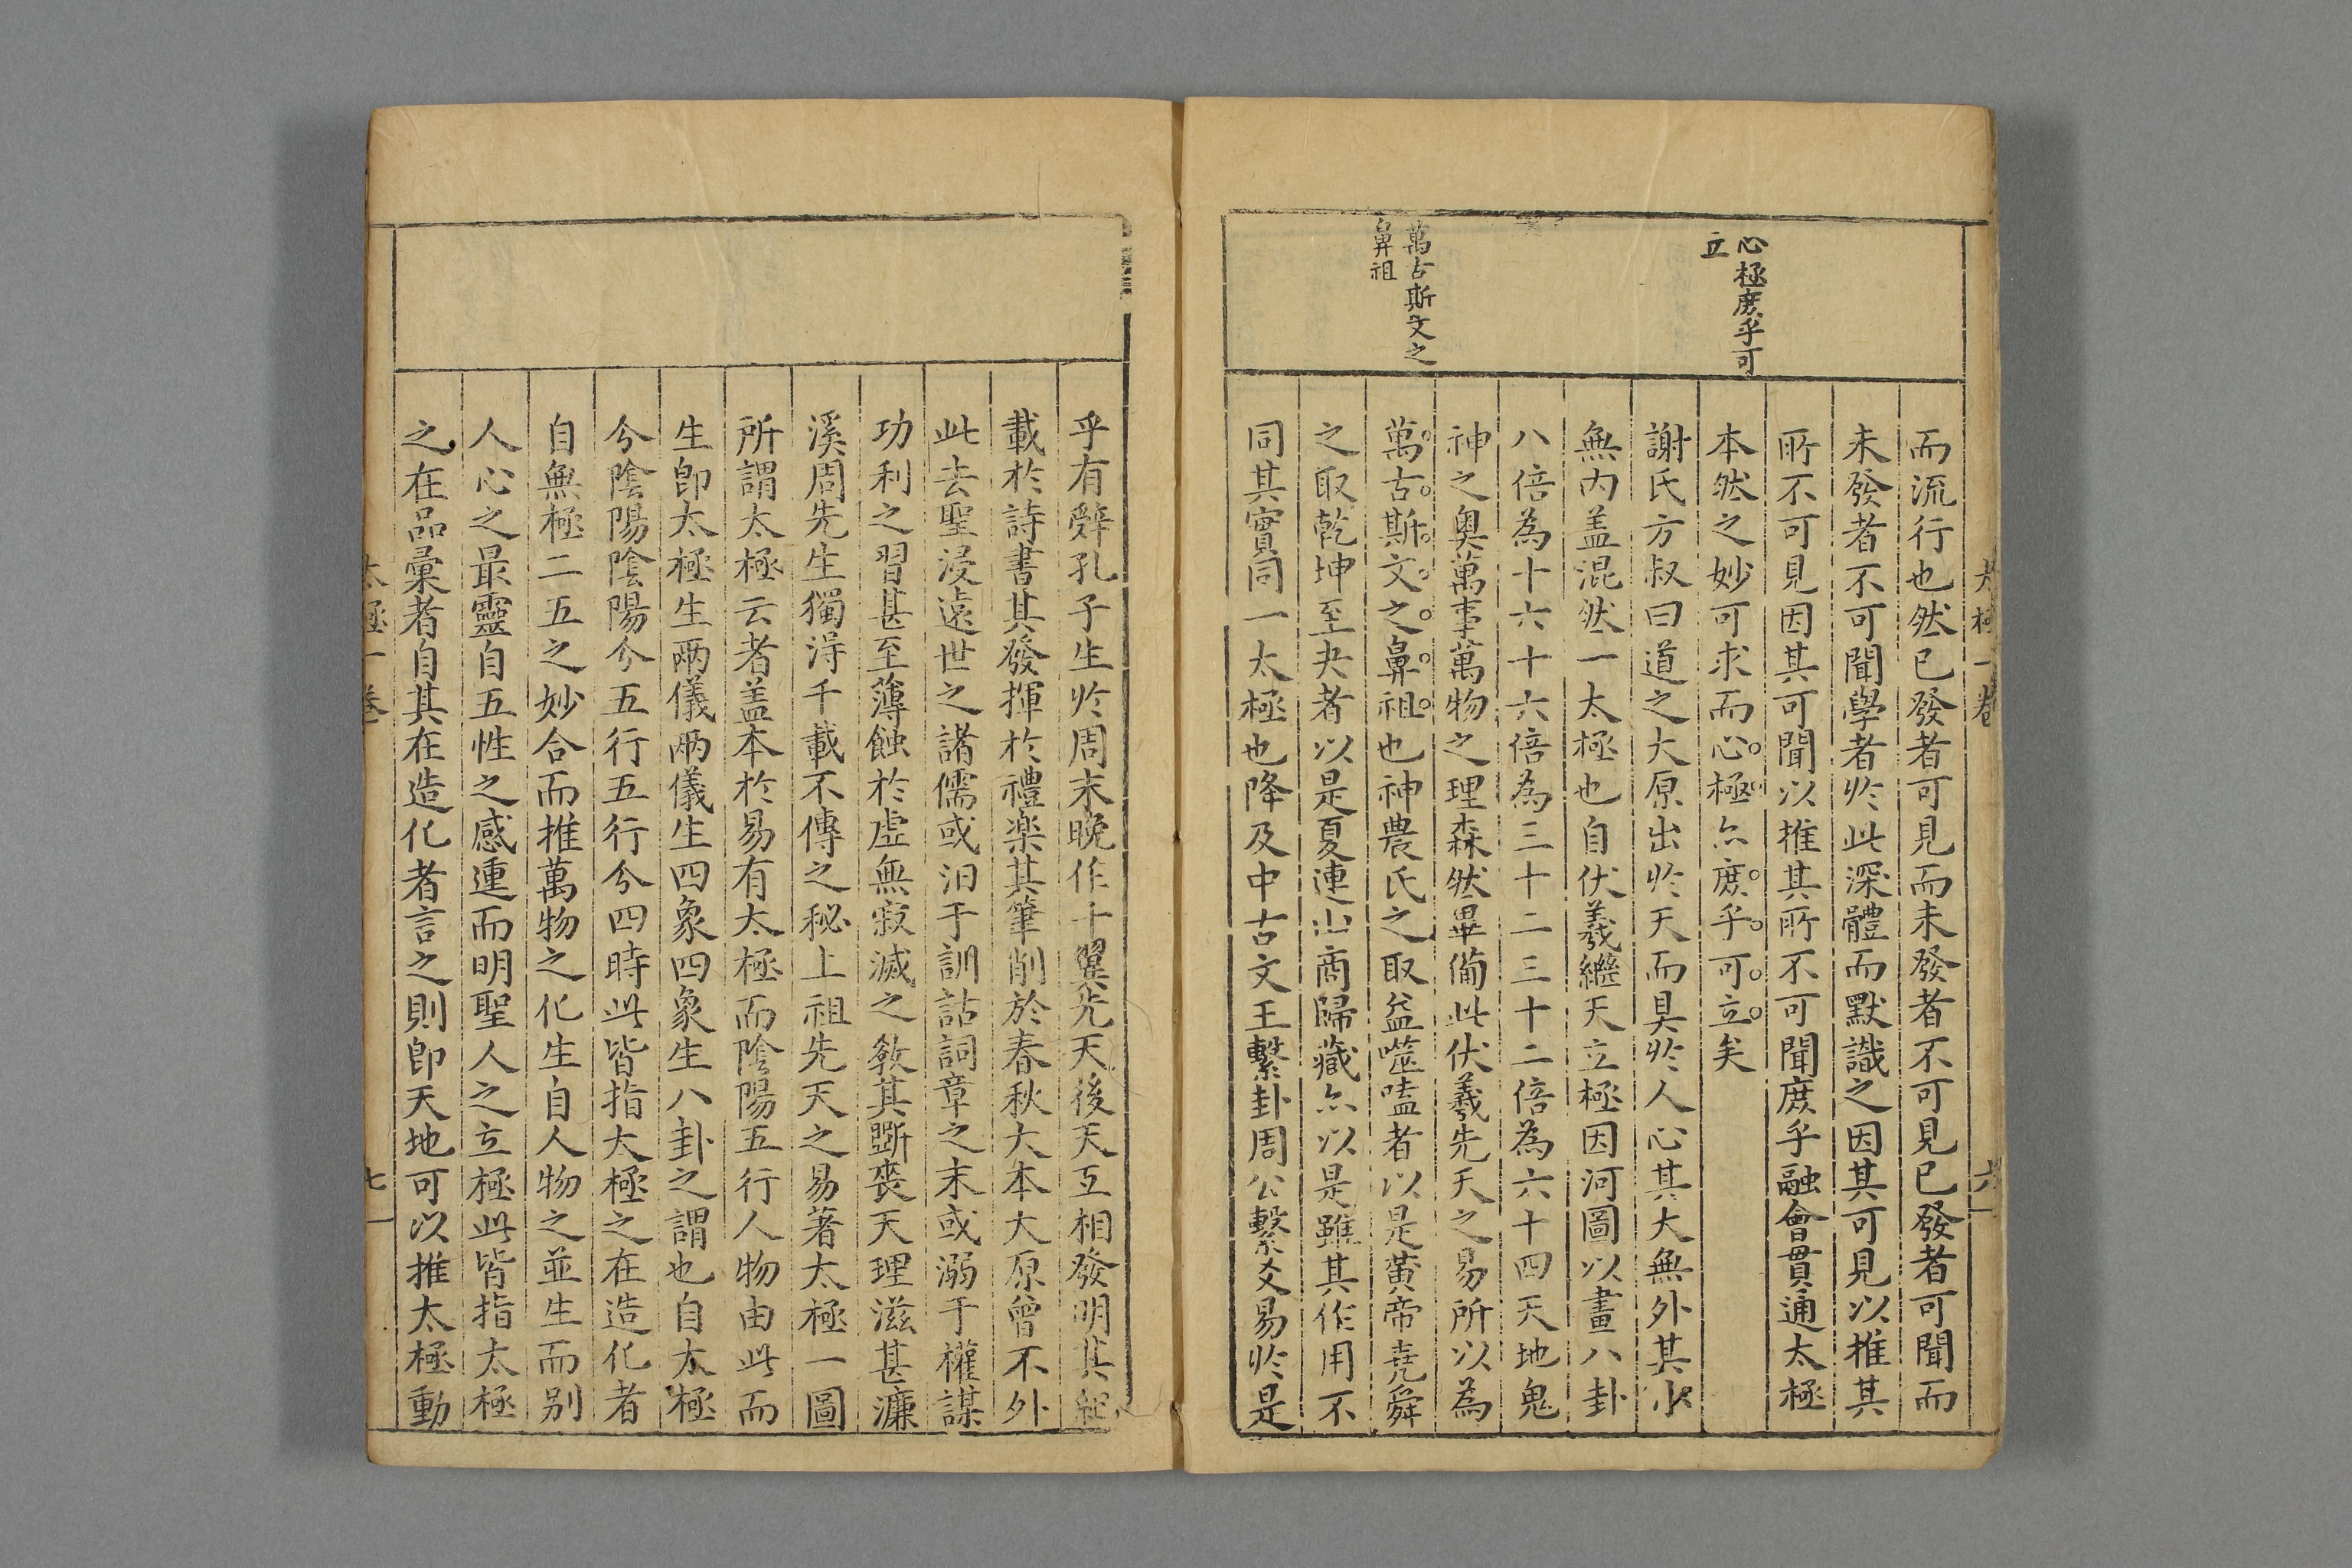 太極一卷
六
心極庶乎可
立
萬古斯文之
鼻祖
而流行也然已發者可見而未發者不可見已發者可聞而
未發者不可聞學者於此深體而默識之因其可見以推其
所不可見因其可聞以推其所不可聞庶乎融會貫通太極
本然之妙可求而心極亦庶乎可立矣
謝氏方叔曰道之大原出於天而具於人心其大無外其小
無內盖混然一太極也自伏羲繼天立極因河圖以畫八卦
八倍為十六十六倍為三十二三十二倍為六十四天地鬼
神之奥萬事萬物之理森然畢俻此伏羲先天之易所以為
萬古斯文之鼻祖也神農氏之取益噬嗑者以是黃帝堯舜
之取乾坤至夬者以是夏連山商歸藏亦以是雖其作用不
同其實同一太極也降及中古文王繫卦周公繫爻易於是
乎有辭孔子生於周末晚作十翼先天後天互相發明其縱
載於詩書其發揮於禮楽其筆削於春秋大本大原曾不外
此去聖浸遠世之諸儒或汨于訓詁詞章之末或溺于權謀
功利之習甚至薄蝕於虛無寂滅之教其斲喪天理滋甚濂
溪周先生獨淂千載不傳之秘上祖先天之易著太極一圖
所謂太極云者盖本於易有太極而陰陽五行人物由此而
生即太極生兩儀兩儀生四象四象生八卦之謂也自太極
分陰陽陰陽分五行五行分四時此皆指太極之在造化者
自無極二五之妙合而推萬物之化生自人物之並生而别
人心之最靈自五性之感運而明聖人之立極此皆指太極
之在品彙者自其在造化者言之則即天地可以推太極動
太極一卷
七